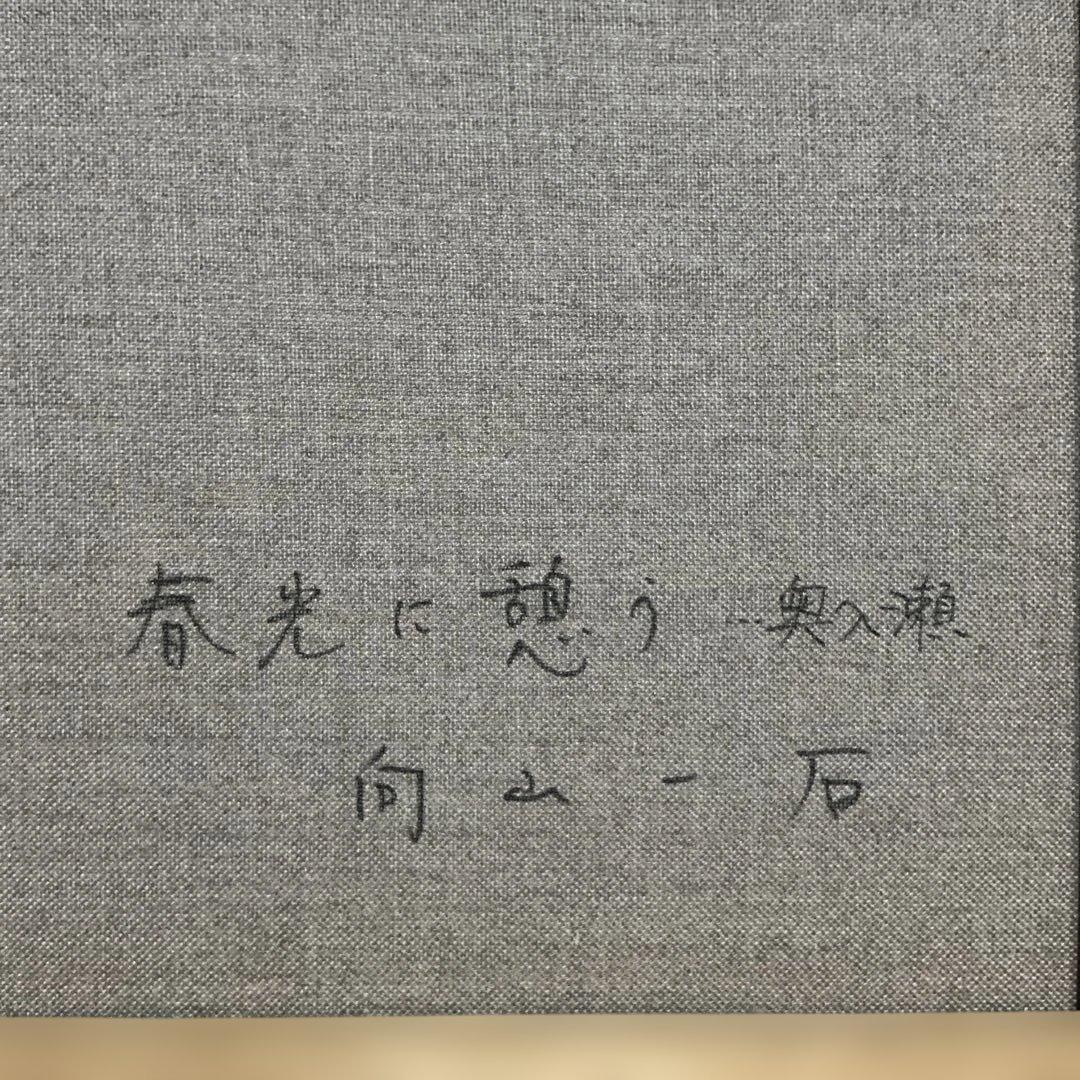 春光に憩う …奥入瀬
向山一石